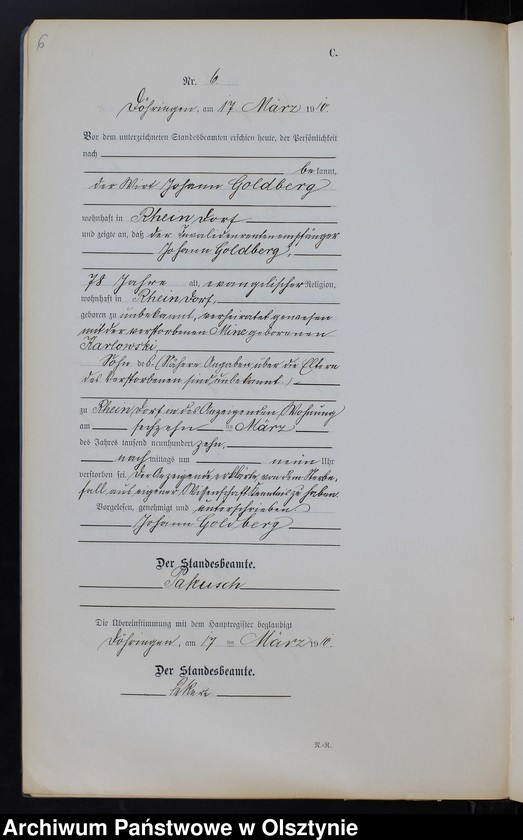 6
C.
Nr. 6
Döhringen, am 17 März 1910.
Vor dem unterzeichneten Standesbeamten erschien heute, der Persönlichkeit
nach
bekannt,
der Wirt Johann Goldberg
wohnhaft in Rhein Dorf
und zeigte an, daß der Invalidenrentenempfänger
Johann Goldberg,
78 Jahre alt, evangelischer Religion,
wohnhaft in Rhein Dorf,
geboren zu unbekannt, verheiratet gewesen
mit der verstorbenen Mine geborenen
Karlowski,
Sohn des (Nähere Angaben über die Eltern
des Verstorbenen sind unbekannt)
zu Rhein Dorf in des Anzeigenden Wohnung
am sechzehn ten März
des Jahres tausend neunhundert zehn,
nachmittags um neun Uhr
verstorben sei. Der Anzeigende erklärte, von dem Sterbe-
fall aus eigener Wissenschaft Kenntnis zu haben.
Vorgelesen, genehmigt und unterschrieben
Johann Goldberg
Der Standesbeamte.
Pakusch
Die Übereinstimmung mit dem Hauptregister beglaubigt
Döhringen, am 17 ten März 1910.
Der Standesbeamte.
N.-R.
Archiwum Państwowe w Olsztynie